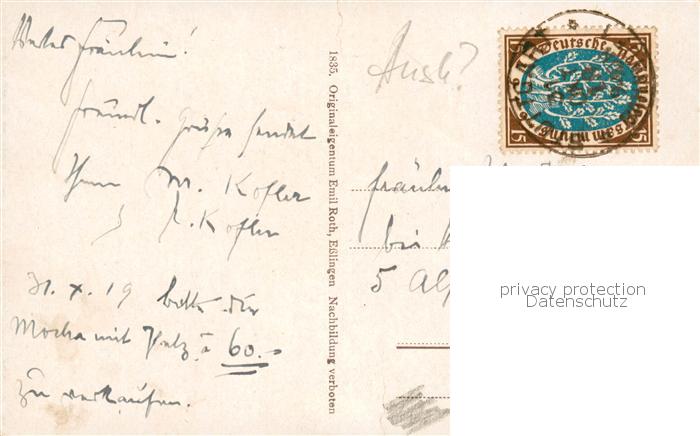 Wertes Fräulein!
freundl. Grüße sendet
Ihnen M. Kofler
R. Kofler
31. X. 19 bitte die
Mocka mit Pelz à 60.-
zu verkaufen.
1835, Originaleigentum Emil Roth, Eßlingen Nachbildung verboten
Ausl?
Deutsche National
versammlung
15 15
Fräulein
bei
5 Al
privacy protection
Datenschutz